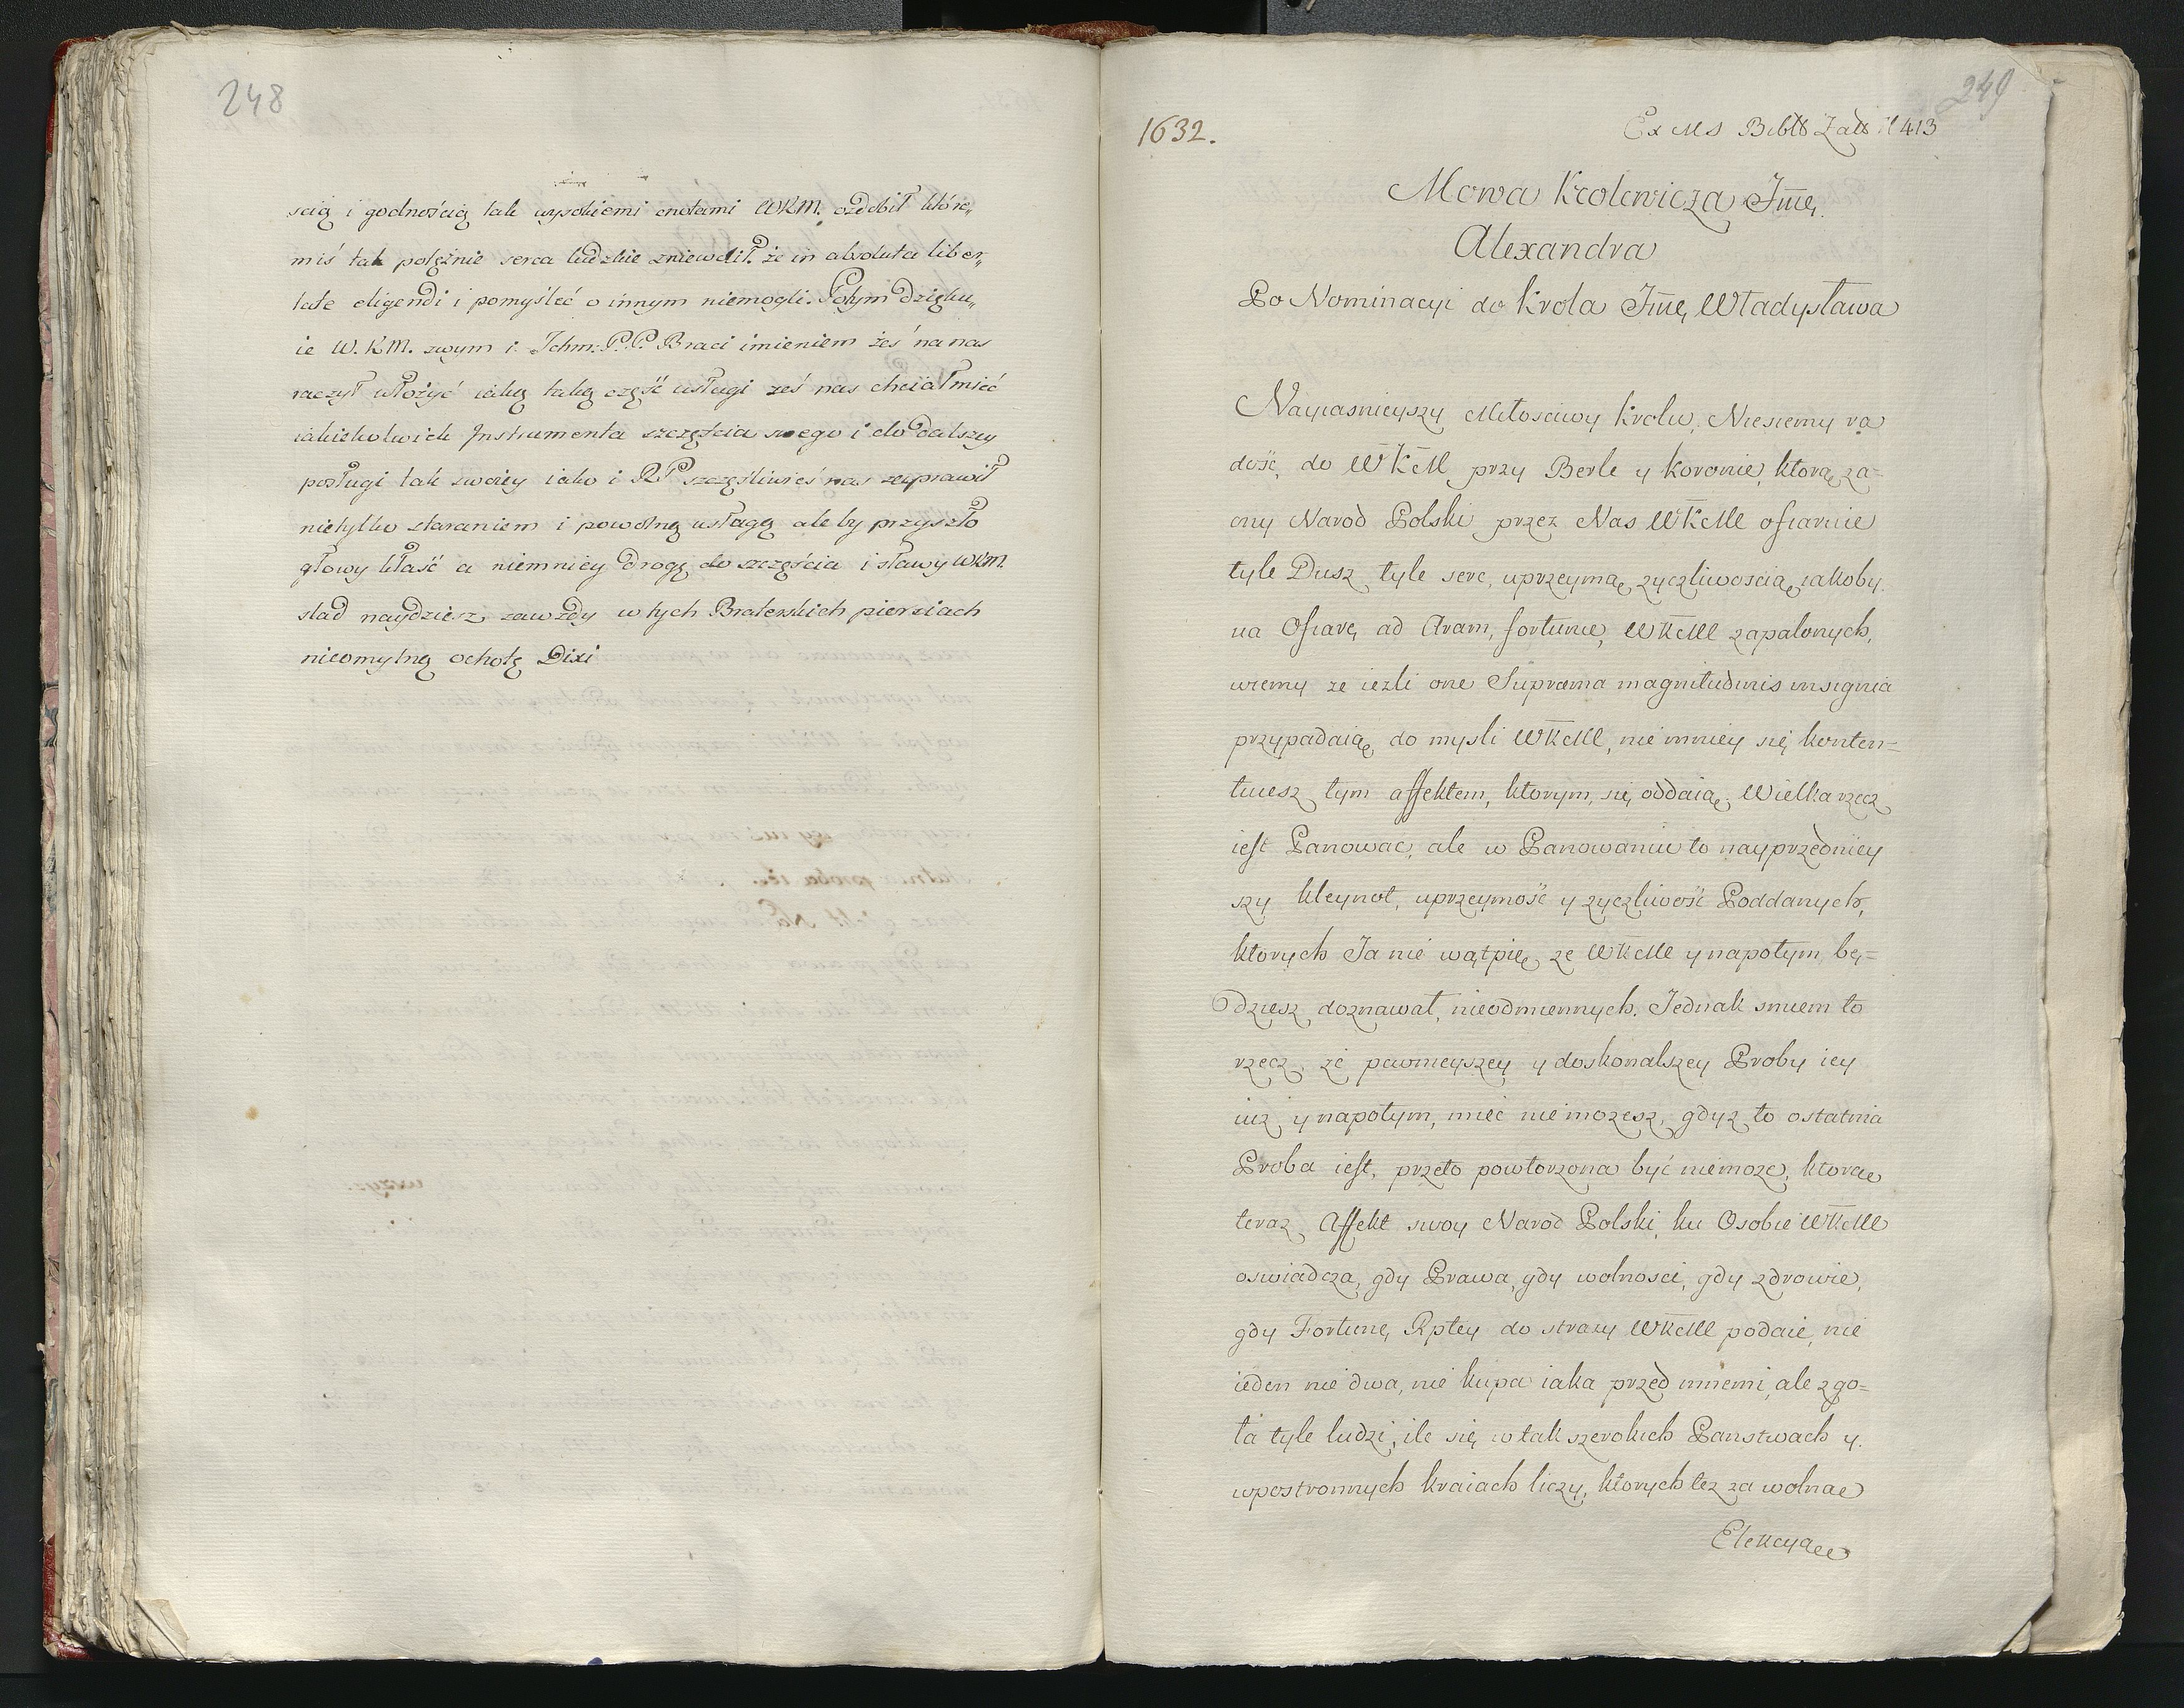 248
scią i godnością tak wysokiemi cnotami WKM. ozdobił które„
miś tak potężnie serca ludzkie zniewolił że in absoluta liber„
tate eligendi i pomyśleć o innym niemogli. Potym dzięku„
ie W. KM. swym i Ichm: P.P. Braci imieniem żeś na nas
raczył włożyć iaką taką część usługi żeś nas chciał mieć
iakiekolwiek Instrumenta szczęścia swego i do dalszey
posługi tak swoiey iako i RP szczęśliwieś nas zaprawił
nietylko staraniem i powolną usługą ale by przyszło
głowy kłaść a niemniey drogę do szczęścia i sławy WKM.
słać naydziesz zawżdy w tych Braterskich piersiach
nieomylną ochotę Dixi
249
1632.
Ex MS Bibłł Zału N 413
Mowa Krolewicza Jmę.
Alexandra
Po Nominacyi do Krola Jmę Władysława
Nayiasnieyszy Miłosciwy Krolu, Niesiemy ra
dość, do WKM przy Berle y koronie, ktorą za=
cny Narod Polski przez Nas WKM ofiaruie
tyle Dusz, tyle serc, uprzeymą zyczliwoscią, iakoby
na Ofiarę ad Aram, fortunę, WKM zapalonych,
wiemy ze iezli one Suprema magnitudinis insignia
przypadaią do mysli WKM, nie mniey się konten=
tuiesz tym affektem, ktorym, się oddaią. Wielka rzecz
iest Panowac, ale w Panowaniu to nayprzedniey
szy kleynot, uprzeymość y zyczliwość Poddanych,
ktorych Ja nie wątpię, ze WKM y napotym bę=
dziesz doznawał, nieodmiennych. Jednak smiem to
rzecz, że pewnieyszey y doskonalszey Proby iey
iuz y napotym, mieć nie mozesz, gdyz to ostatnia
Proba iest, przeto powtorzona być niemoze, ktorą
teraz Affekt swoy Narod Polski, ku Osobie WKM
oswiadcza, gdy Prawa, gdy wolnosci, gdy zdrowie,
gdy Fortunę Rptey do strazy WKM podaie, nie
ieden nie dwa, nie kupa iaka przed innemi, ale zgo=
ła tyle ludzi, ile się w tak szerokich Panstwach y
wpostronnych kraiach liczy, ktorych tez za wolną
Elekcyą